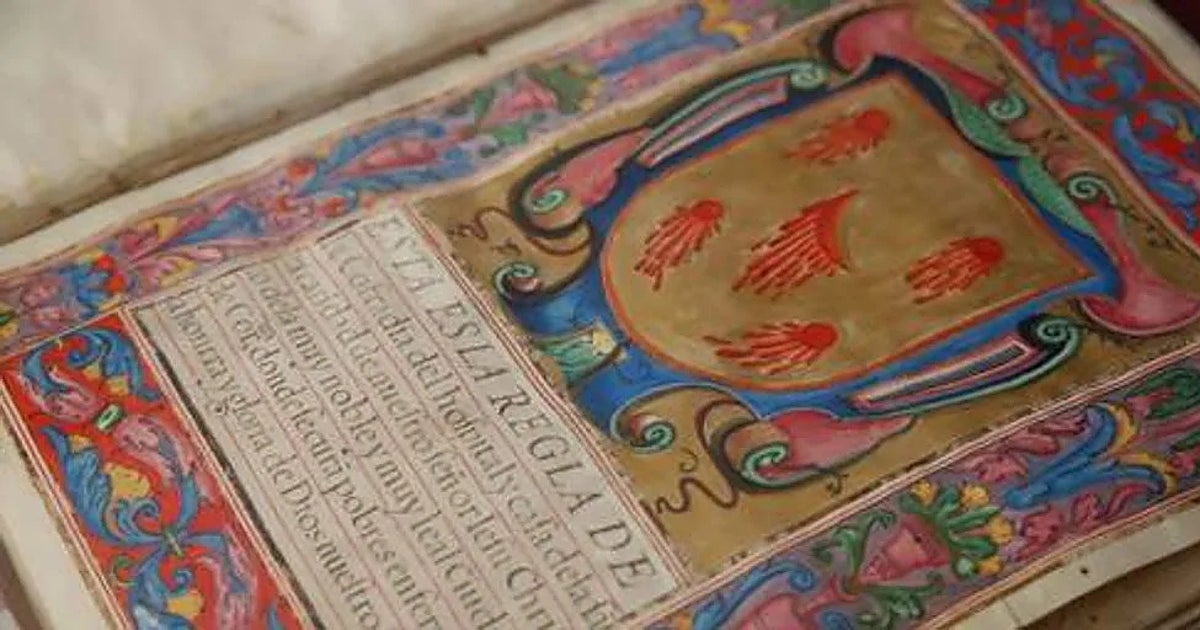 ESTA ES LA REGLA DE
Cofradia del hospital y casa de la
de nuestro señor Iesu Chri
dela muy noble y muy leal Ciud
donde se curā pobres enfer
A honrra y gloria de Dios nuestro